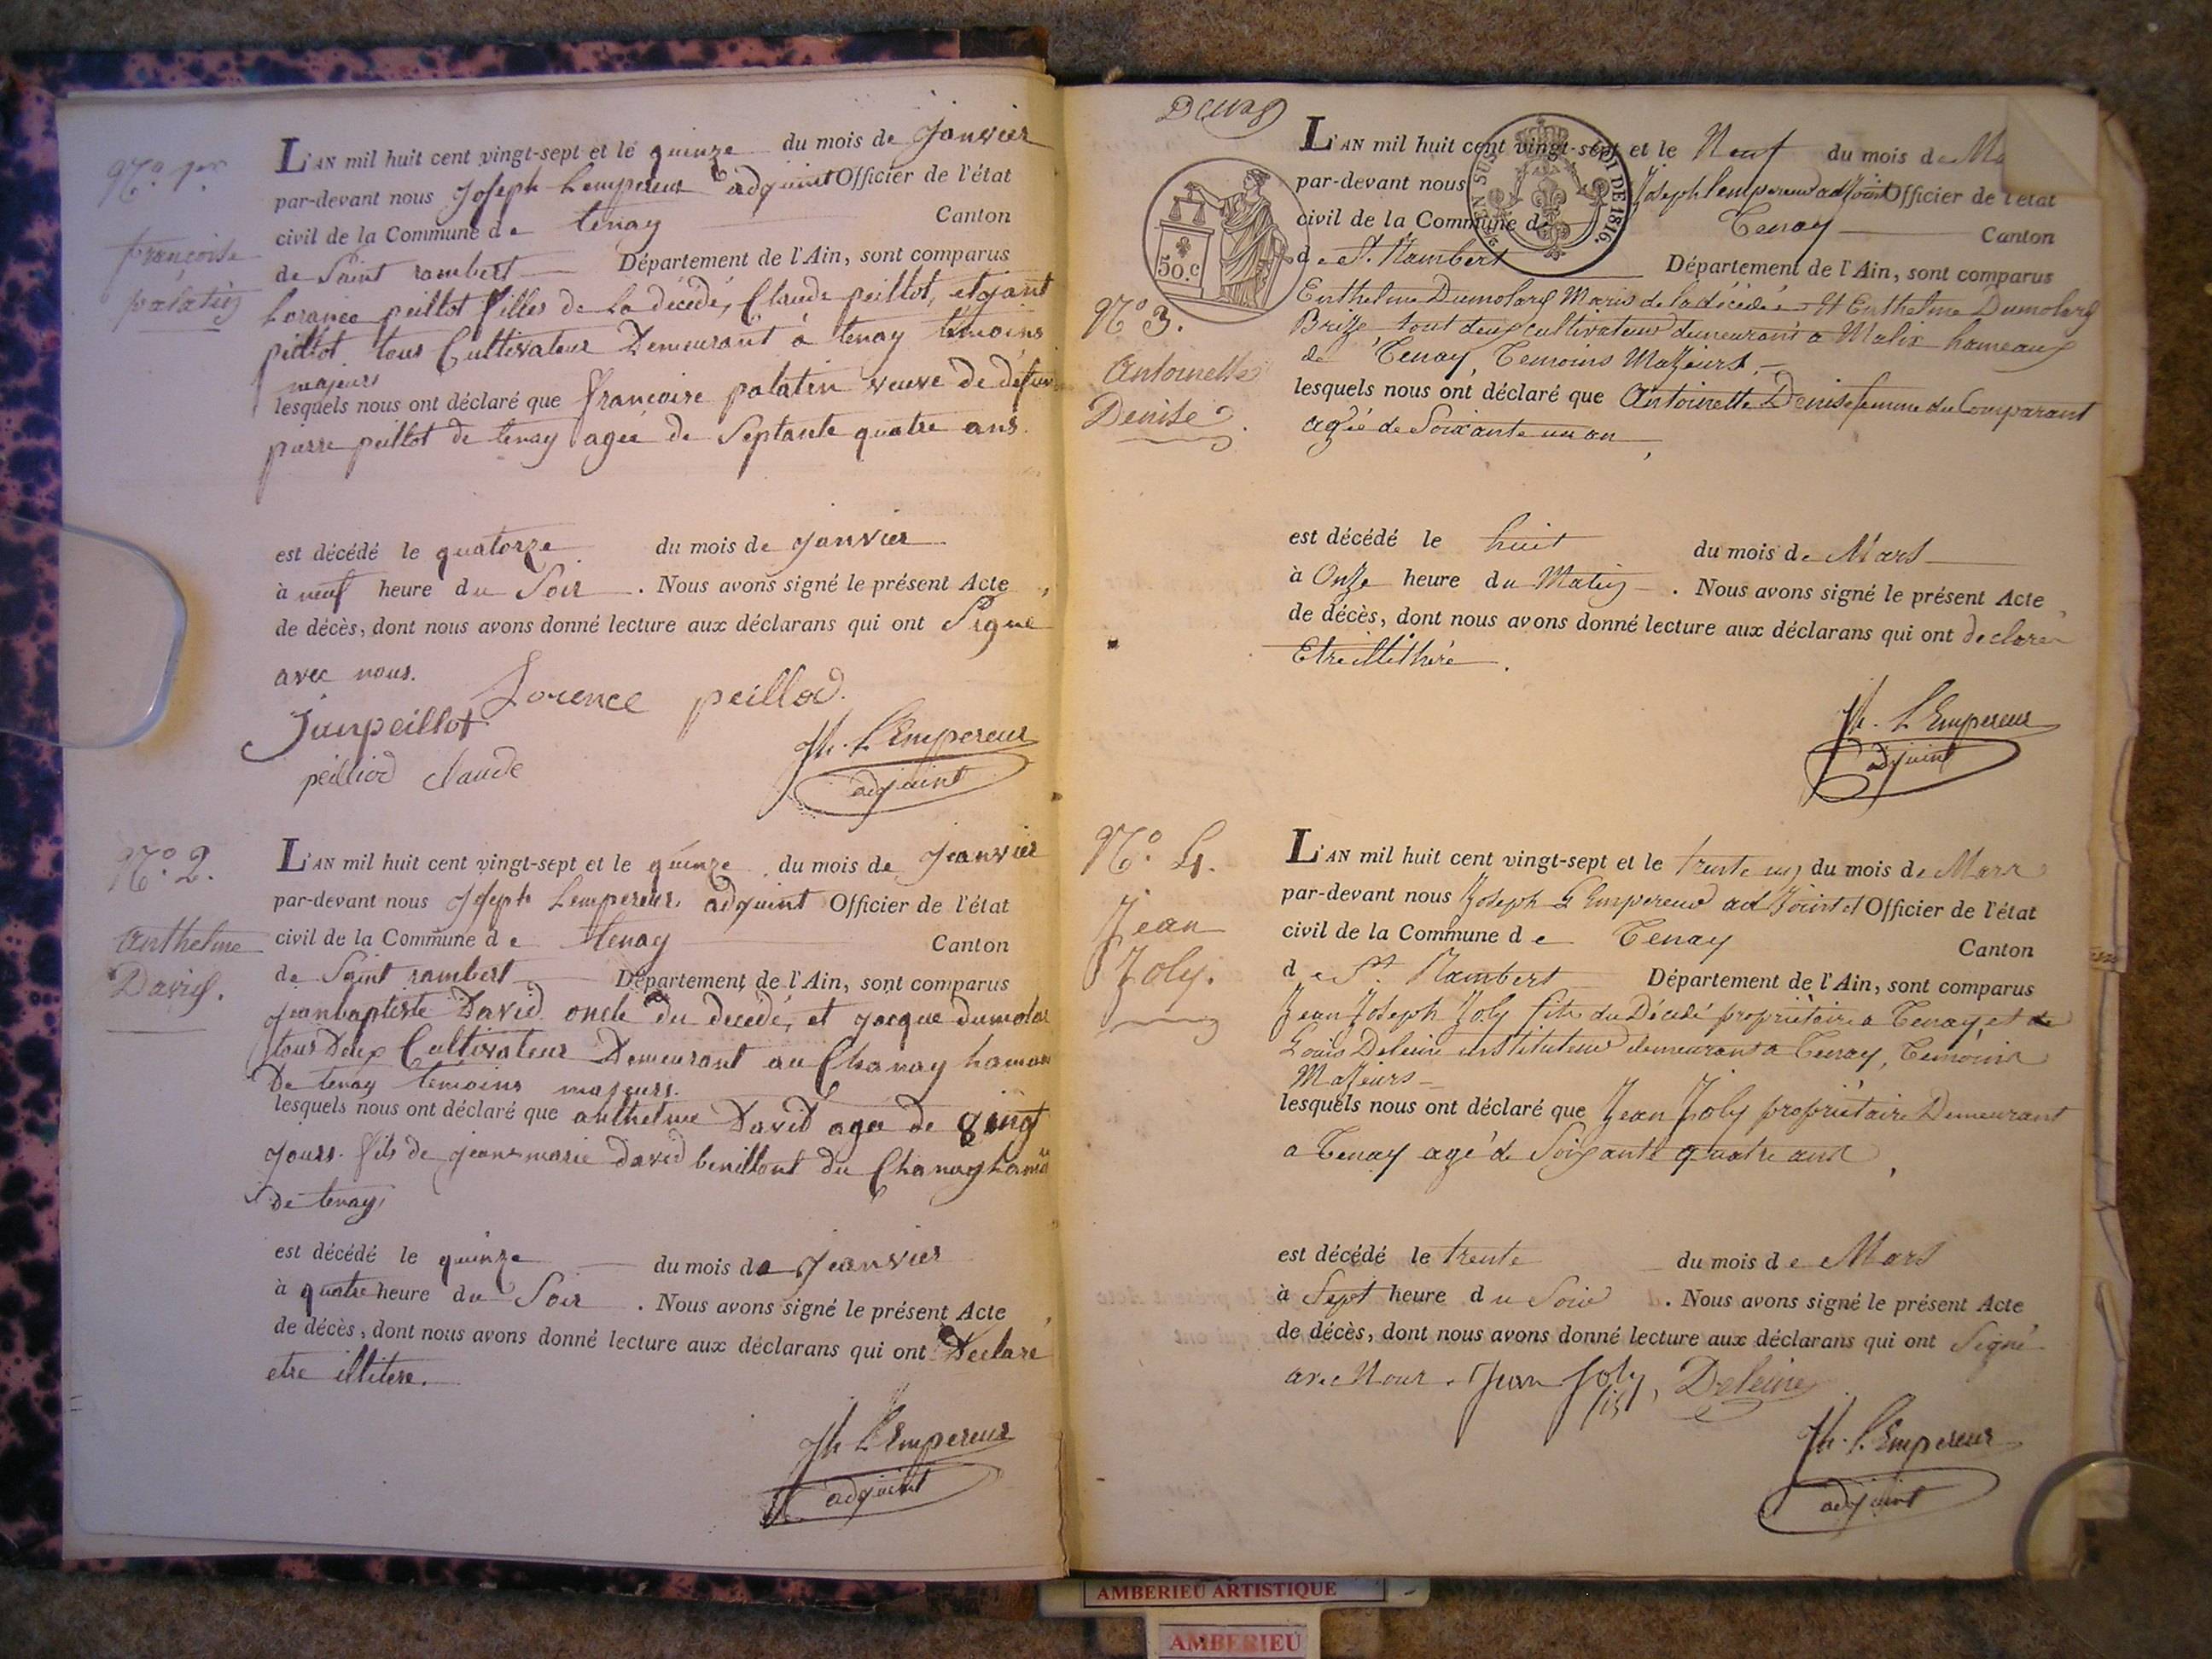 N.o 1er
françoise
palatin
L'AN mil huit cent vingt-sept et le quinze du mois de janvier
par-devant nous joseph Lempereur adjoint Officier de l'état
civil de la Commune de tenay Canton
de Saint rambert Département de l'Ain, sont comparus
Lorance peillot filles de la décédé, Claude peillot, et jant
peillot tous Cultivateur Demeurant à tenay témoins
majeurs
lesquels nous ont déclaré que françoise palatin veuve de défun
pierre peillot de tenay agée de Septante quatre ans
est décédé le quatorze du mois de janvier
à neuf heure du Soir. Nous avons signé le présent Acte
de décès, dont nous avons donné lecture aux déclarans qui ont Signé
avec nous.
Lorence peillod.
Janpeillot
peilliod claude
Jh. L'Empereur
adjoint
N.o 2.
Anthelme
David.
L'AN mil huit cent vingt-sept et le quinze du mois de janvier
par-devant nous joseph Lempereur adjoint Officier de l'état
civil de la Commune de tenay Canton
de Saint rambert Département de l'Ain, sont comparus
jeanbaptiste David oncle du decedé, et jacque dumolar
tous Deux Cultivateur Demeurant au Chanay hamau
De tenay témoins majeurs.
lesquels nous ont déclaré que anthelme David agé de
jours. fils de jeanmarie david du Chanay hamau
De tenay,
est décédé le quinze du mois de janvier
à quatre heure du Soir. Nous avons signé le présent Acte
de décès, dont nous avons donné lecture aux déclarans qui ont Déclaré
etre illitere.
Jh L'Empereur
adjoint
SUS
ROI DE 1816.
50.c
L'AN mil huit cent vingt-sept et le Neuf du mois de Ma
par-devant nous Joseph lempereur adjoint Officier de l'état
civil de la Commune de Tenay Canton
de St. Rambert Département de l'Ain, sont comparus
N.o 3.
Antoinette
Denise
Enthelme Dumolard Maris de la décédée Et Enthelme Dumolard
Brize tout deux cultivateur demeurant a Malix hameaux
de Tenay, Temoins Majeurs.
lesquels nous ont déclaré que Antoinette Denise femme du Comparant
agée de Soixante un an
est décédé le huit du mois de Mars
à Onze heure du Matin. Nous avons signé le présent Acte
de décès, dont nous avons donné lecture aux déclarans qui ont declaré
Etre illithéré.
Jh. L'Empereur
adjoint
N.o 4.
Jean
Joly.
L'AN mil huit cent vingt-sept et le trente un du mois de Mars
par-devant nous Joseph L'Empereur adjoint et Officier de l'état
civil de la Commune de Tenay Canton
de St. Rambert Département de l'Ain, sont comparus
Jean Joseph Joly fils du Décédé propriètaire a Tenay, et de
Louis Deleuire instituteur demeurant a Tenay, Temoins
Majeurs
lesquels nous ont déclaré que Jean Joly propriètaire Demeurant
a Tenay agé de Soixante quatre ans
est décédé le trente du mois de Mars
à Sept heure du Soir. Nous avons signé le présent Acte
de décès, dont nous avons donné lecture aux déclarans qui ont Signé
avec Nous. Jean Joly fils, Deleuire
Jh. L'Empereur
adjoint
AMBERIEU ARTISTIQUE
AMBERIEU